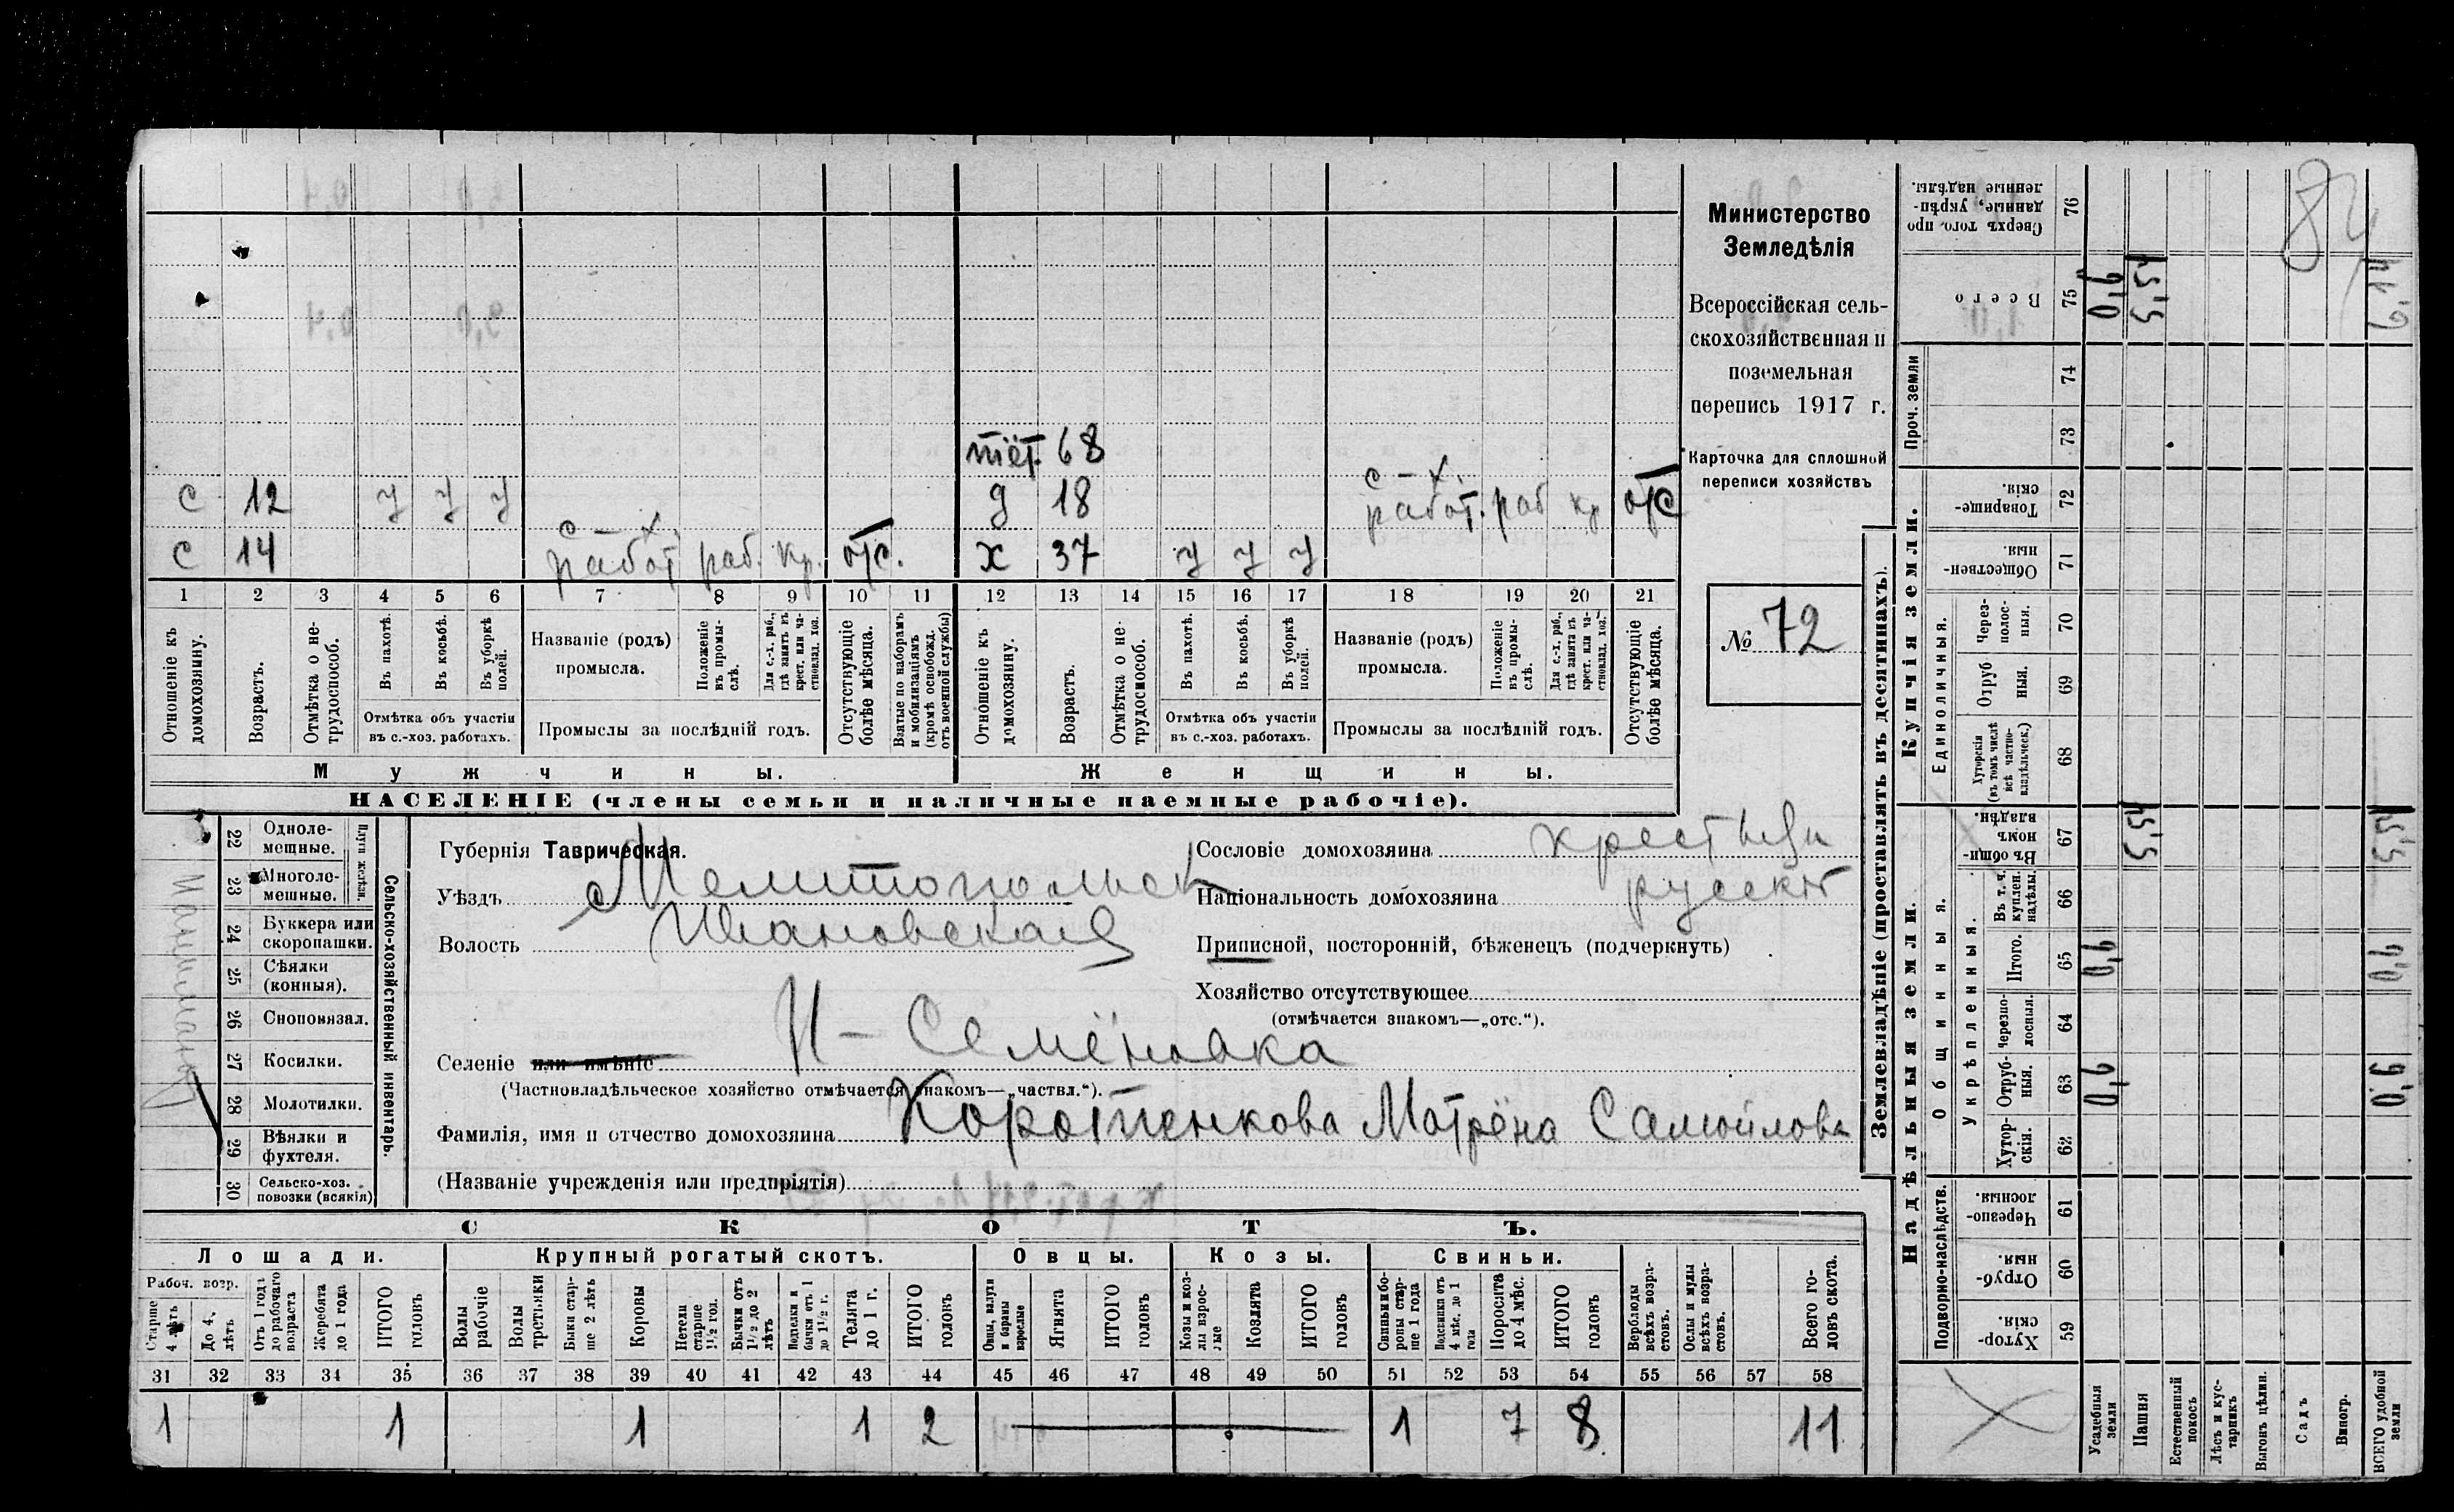 Министерство
Земледѣлія
Всероссійская сель-
скохозяйственная и
поземельная
перепись 1917 г.
Карточка для сплошной
переписи хозяйствъ
№ 72
84
тёт. 68
с 12 у у у
д 18 с-х. работ. раб кр отс
с 14 с-х. работ раб. кр. отс.
х 37 у у у
1 2 3 4 5 6 7 8 9 10 11 12 13 14 15 16 17 18 19 20 21
Отношеніе къ домохозяину.
Возрастъ.
Отмѣтка о не-трудоспособ.
Въ пахотѣ.
Въ косьбѣ.
Въ уборкѣ полей.
Отмѣтка объ участіи въ с.-хоз. работахъ.
Названіе (родъ) промысла.
Положеніе въ промы-слѣ.
Для с.-х. раб., гдѣ занятъ въ крест. или ча-стновлад. хоз.
Промыслы за послѣдній годъ.
Отсутствующіе болѣе мѣсяца.
Взятые по наборамъ и мобилизаціямъ (кромѣ освобожд. отъ военной службы)
Отношеніе къ домохозяину.
Возрастъ.
Отмѣтка о не-трудоспособ.
Въ пахотѣ.
Въ косьбѣ.
Въ уборкѣ полей.
Отмѣтка объ участіи въ с.-хоз. работахъ.
Названіе (родъ) промысла.
Положеніе въ промы-слѣ.
Для с.-х. раб., гдѣ занята въ крест. или ча-стновлад. хоз.
Промыслы за послѣдній годъ.
Отсутствующіе болѣе мѣсяца.
Мужчины.
Женщины.
НАСЕЛЕНІЕ (члены семьи и наличные наемные рабочіе).
22 Одноле-мешные.
23 Многоле-мешные.
Плуги желѣзн.
24 Буккера или скоропашки.
25 Сѣялки (конныя).
26 Сноповязал.
27 Косилки.
28 Молотилки.
29 Вѣялки и фухтеля.
30 Сельско-хоз. повозки (всякія)
Сельско-хозяйственный инвентарь.
Губернія Таврическая.
Уѣздъ Мелитопольск
Волость Ивановская
Селеніе или имѣніе Н-Семёновка
(Частновладѣльческое хозяйство отмѣчается знакомъ—„частвл.“).
Фамилія, имя и отчество домохозяина Коротенкова Матрёна Самойлова
(Названіе учрежденія или предпріятія)
Сословіе домохозяина крестьян
Національность домохозяина русскіт
Приписной, посторонній, бѣженецъ (подчеркнуть)
Хозяйство отсутствующее
(отмѣчается знакомъ—„отс.“).
СКОТЪ.
Лошади.
Крупный рогатый скотъ.
Овцы.
Козы.
Свиньи.
Рабоч. возр.
Старше 4 лѣтъ
До 4. лѣтъ
Отъ 1 года до рабочаго возраста
Жеребята до 1 года
ИТОГО головъ
Волы рабочіе
Волы третьяки
Быки стар-ше 2 лѣтъ
Коровы
Нетели старше 1½ год.
Бычки отъ 1½ до 2 лѣтъ
Подтелки и бычки отъ 1 до 1½ г.
Телята до 1 г.
ИТОГО головъ
Овцы, валухи и бараны взрослые
Ягнята
ИТОГО головъ
Козы и коз-лы взрос-лые
Козлята
ИТОГО головъ
Свиньи и бо-ровы стар-ше 1 года
Подсвинки отъ 4 мѣс. до 1 года
Поросята до 4 мѣс.
ИТОГО головъ
Верблюды всѣхъ возра-стовъ.
Ослы и мулы всѣхъ возра-стовъ.
Всего го-ловъ скота.
31 32 33 34 35 36 37 38 39 40 41 42 43 44 45 46 47 48 49 50 51 52 53 54 55 56 57 58
1 1 1 1 2 1 7 8 11
Землевладѣніе (проставлять въ десятинахъ).
Надѣльныя земли.
Купчія земли.
Проч. земли
Подворно-наслѣдств.
Общинныя.
Укрѣпленныя.
Единоличныя.
Сверхъ того, про-данные, укрѣп-ленные надѣлы. 76
Всего 75 0,9 5,5
74
73
Товарище-скія. 72
Обществен-ныя. 71
Через-полос-ныя. 70
Отруб-ныя. 69
Хуторскія (въ томъ числѣ всѣ частно-владѣльческ.) 68
Въ общин-номъ владѣн. 67 5,5 5,5
Въ т. ч. куплен. надѣлы. 66
Итого. 65 0,9 0,9
Черезпо-лосныя. 64
Отруб-ныя. 63 0,9 0,9
Хутор-скія. 62
Черезпо-лосныя. 61
Отруб-ныя. 60
Хутор-скія. 59
Усадебныя земли
Пашня
Естественный покосъ
Лѣсъ и кус-тарникъ
Выгонъ цѣлин.
Садъ
Виногр.
ВСЕГО удобной земли